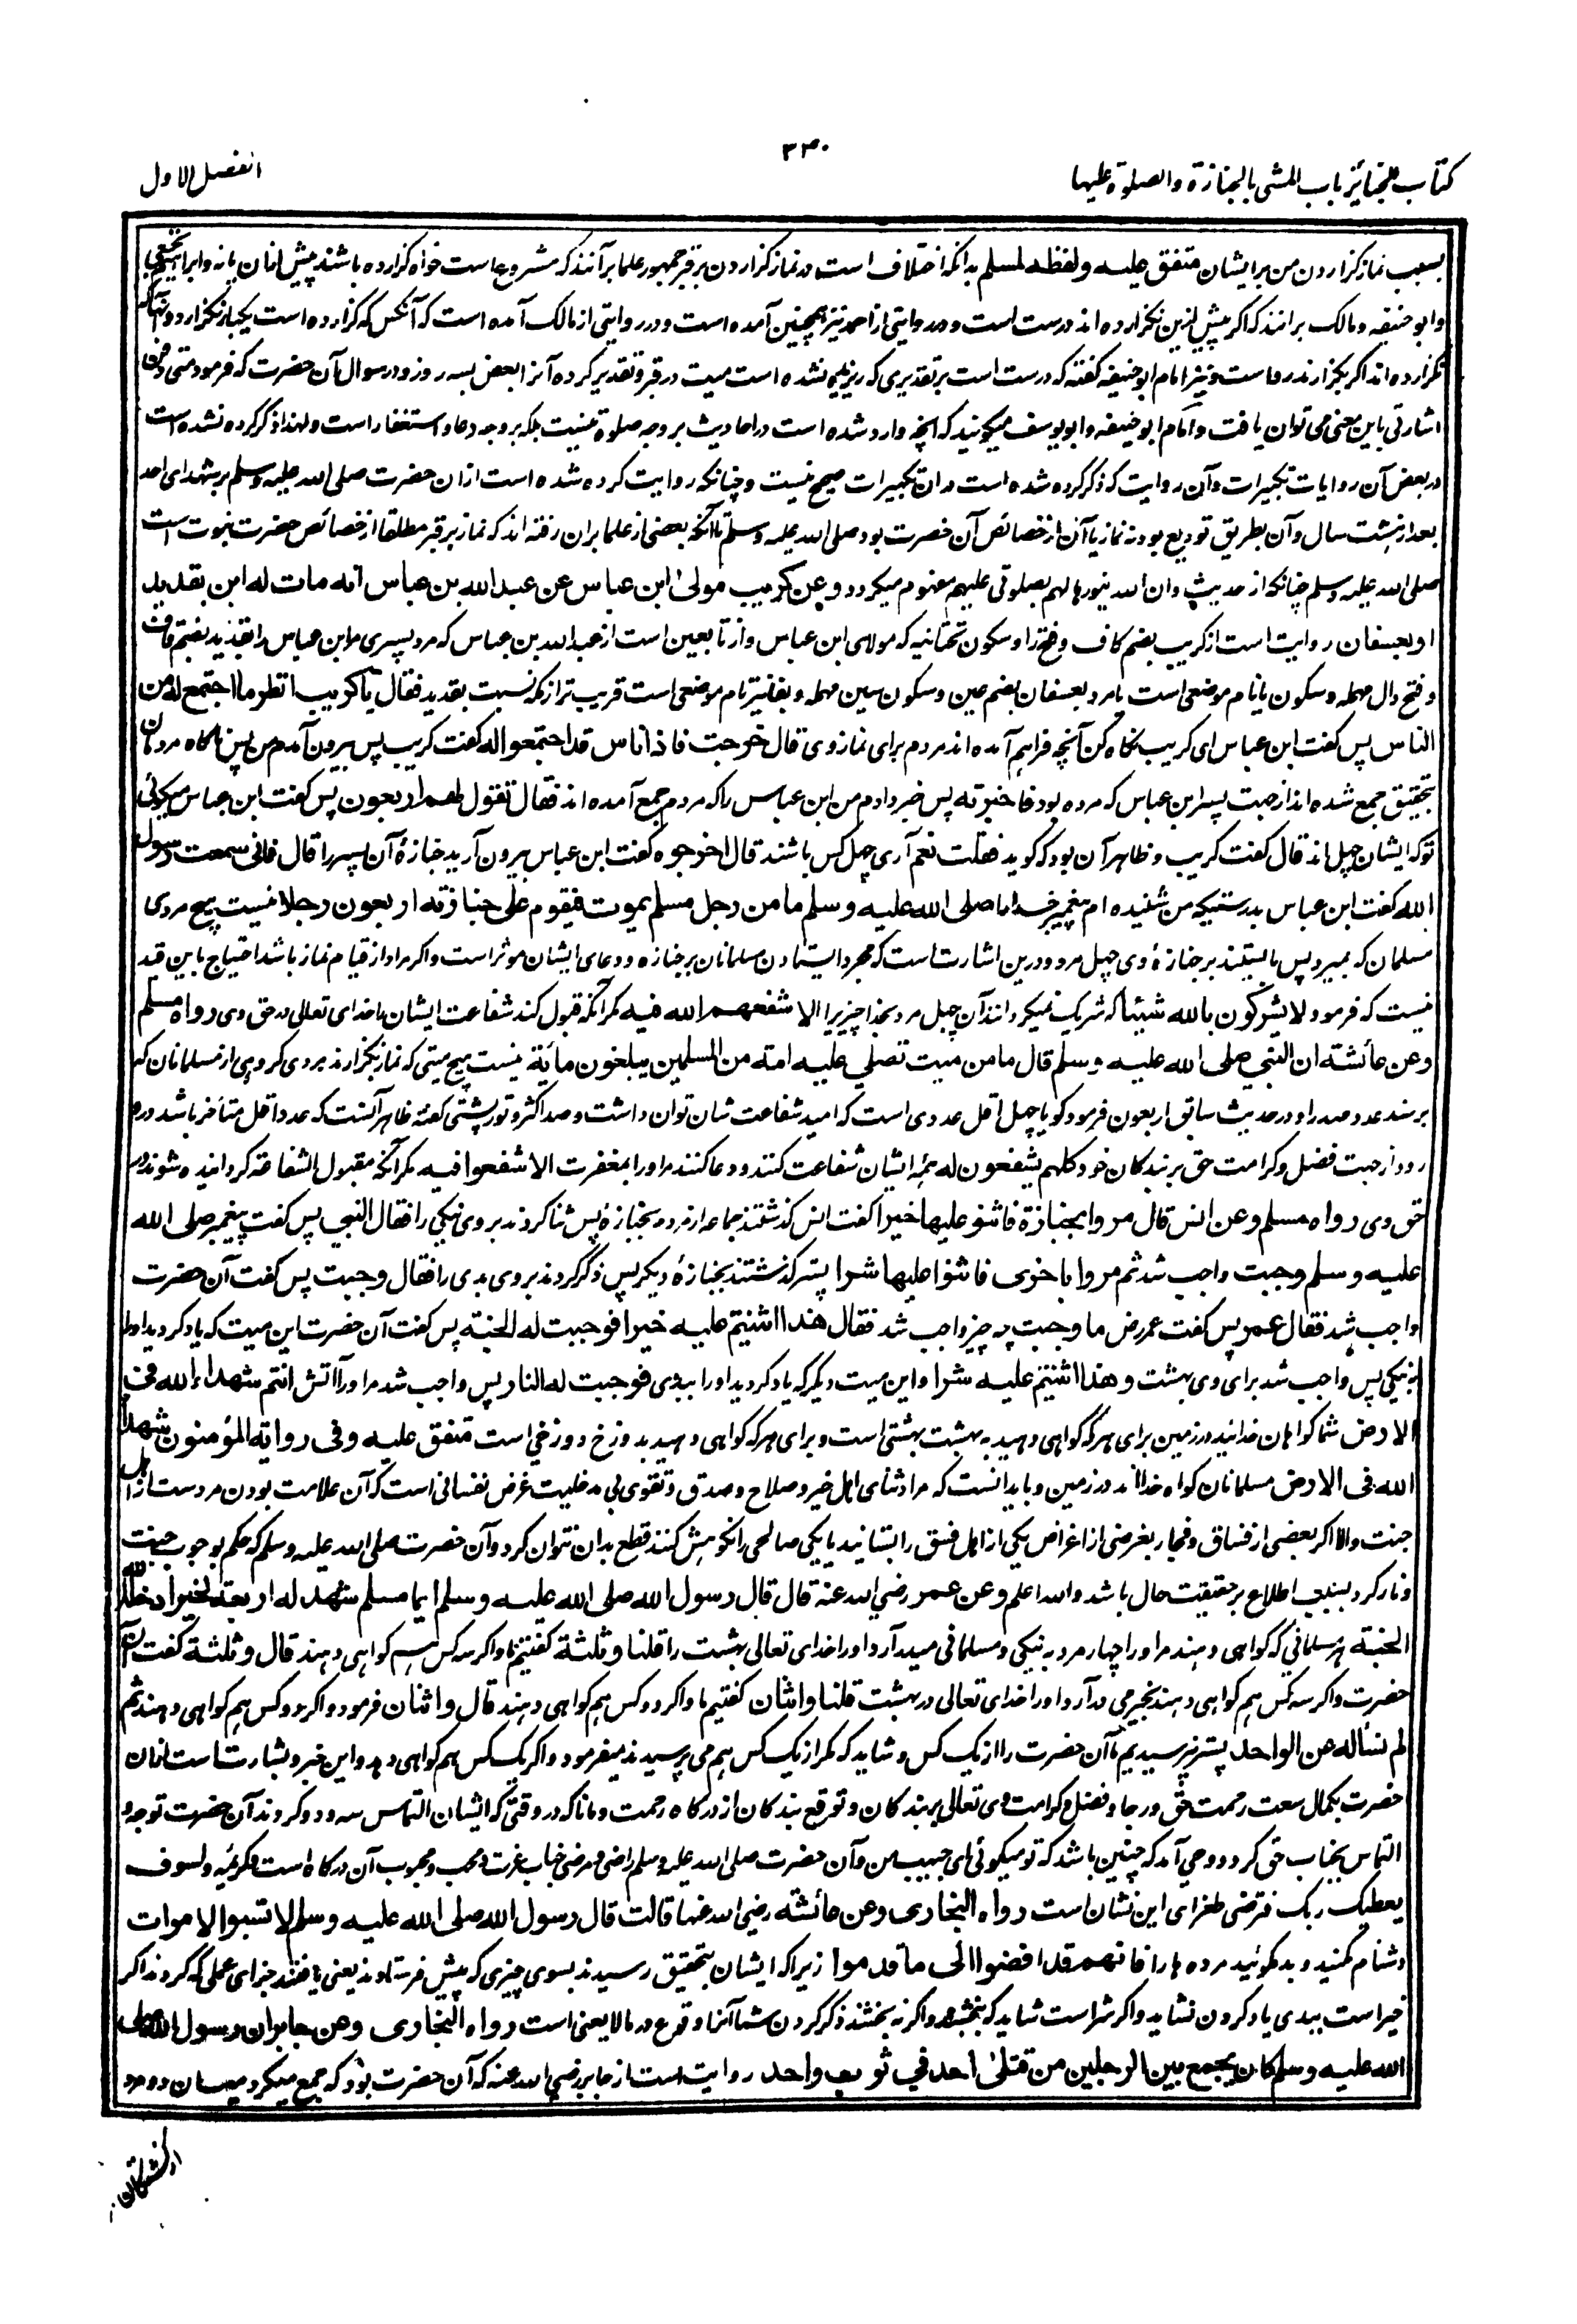 ۳۴۰
كتاب الجنائز باب المشى بالجنازة والصلوة عليها
الفصل الاول
بسبب نماز گزاردن من برايشان متفق عليه ولفظه لمسلم بدانكه اختلاف است در نماز گزاردن بر قبر جمهور علما برآنند كه مشروع است خواه گزارده باشند پيش ازان يا نه و ابراهيم نخعى
و ابو حنيفه و مالك برانند كه اگر پيش ازين نگزارده اند درست است و در روايتى از احمد نيز همچنين آمده است و در روايتى از مالك آمده است كه آنكس كه گزارده است يكبار نگزارد و آنها كه
نگزارده اند اگر بگزارند رواست و نيز امام ابو حنيفه گفته كه درست است بر تقديرى كه ريزيده نشده است ميت در قبر و تقدير كرده آنرا بعض بسه روز و در سوال آن حضرت كه فرمود متى دفن
اشارتى باين معنى مى توان يافت و امام ابو حنيفه و ابو يوسف ميگويند كه آنچه وارد شده است در احاديث بر وجه صلوة نيست بلكه بر وجه دعا و استغفار است و لهذا ذكر كرده نشده است
در بعض آن روايات تكبيرات و آن روايت كه ذكر كرده شده است در ان تكبيرات صحيح نيست و چنانكه روايت كرده شده است از ان حضرت صلى الله عليه وسلم بر شهداى احد
بعد از هشت سال و آن بطريق توديع بود نه نماز يا آن از خصائص آن حضرت بود صلى الله عليه وسلم تا آنكه بعضى از علما بران رفته اند كه نماز بر قبر مطلقا از خصائص حضرت نبوت است
صلى الله عليه وسلم چنانكه از حديث وان الله ينورها لهم بصلوتى عليهم مفهوم ميگردد وعن كريب مولى ابن عباس عن عبد الله بن عباس انه مات له ابن بقديد
او بعسفان روايت است از كريب بضم كاف و فتح را و سكون تحتانيه كه مولاى ابن عباس و از تابعين است از عبد الله بن عباس كه مرد پسرى مر ابن عباس را بقديد بضم قاف
و فتح دال مهمله و سكون يا نام موضعى است يا مرد بعسفان بضم عين و سكون سين مهمله و بفا نيز نام موضعى است قريب تر از مكه نسبت بقديد فقال يا كريب انظر ما اجتمع له من
الناس پس گفت ابن عباس اى كريب نگاه كن آنچه فراهم آمده اند مردم براى نماز وى قال خرجت فاذا ناس قد اجتمعوا له گفت كريب پس بيرون آمدم من پس ناگاه مردمان
بتحقيق جمع شده اند از جهت پسر ابن عباس كه مرده بود فاخبرته پس خبر دادم من ابن عباس را كه مردم جمع آمده اند فقال تقول هم اربعون پس گفت ابن عباس ميگوئى
تو كه ايشان چهل اند قال گفت كريب و ظاهر آن بود كه گويد فقلت نعم آرى چهل كس باشند قال اخرجوه گفت ابن عباس بيرون آريد جنازهٔ آن پسر را قال فانى سمعت رسول
الله گفت ابن عباس بدرستيكه من شنيده ام پيغمبر خدا را صلى الله عليه وسلم ما من رجل مسلم يموت فيقوم على جنازته اربعون رجلا نيست هيچ مردى
مسلمان كه بميرد پس بايستند بر جنازهٔ وى چهل مرد و درين اشارت است كه مجرد ايستادن مسلمانان بر جنازه و دعاى ايشان موثر است و اگر مراد از قيام نماز باشد احتياج باين قيد
نيست كه فرمود لا يشركون بالله شيئا كه شريك نميگردانند آن چهل مرد بخدا چيزيرا الا شفعهم الله فيه مگر آنكه قبول كند شفاعت ايشان را خداى تعالى در حق وى رواه مسلم
وعن عائشة ان النبي صلى الله عليه وسلم قال ما من ميت تصلي عليه امته من المسلمين يبلغون مائة نيست هيچ ميتى كه نماز بگزارند بر وى گروهى از مسلمانان كه
برسند عدد صد را و در حديث سابق اربعون فرمود گويا چهل اقل عددى است كه اميد شفاعت شان توان داشت و صد اكثر و تورپشتى گفته ظاهر آنست كه عدد اقل متأخر باشد در
رود از جهت فضل و كرامت حق بر بندگان خود كلهم يشفعون له همهٔ ايشان شفاعت كنند و دعا كنند مر او را بمغفرت الا شفعوا فيه مگر آنكه مقبول الشفاعة گردانيده شوند در
حق وى رواه مسلم وعن انس قال مروا بجنازة فاثنو عليها خيرا گفت انس گذشتند جماعه از مردم بجنازه پس ثنا كردند بر وى نيكى را فقال النبي پس گفت پيغمبر صلى الله
عليه وسلم وجبت واجب شد ثم مروا باخرى فاثنوا عليها شرا پستر گذشتند بجنازهٔ ديگر پس ذكر كردند بر وى بدى را فقال وجبت پس گفت آن حضرت
واجب شد فقال عمر پس گفت عمر رض ما وجبت چه چيز واجب شد فقال هذا اثنيتم عليه خيرا فوجبت له الجنة پس گفت آن حضرت اين ميت كه ياد كرديد او را
به نيكى پس واجب شد براى وى بهشت وهذا اثنيتم عليه شرا و اين ميت ديگر كه ياد كرديد او را ببدى فوجبت له النار پس واجب شد مر او را آتش انتم شهداء الله فى
الارض شما گواهان خدائيد در زمين براى هر كه گواهى دهيد به بهشت بهشتى است و براى هر كه گواهى دهيد بدوزخ دوزخى است متفق عليه وفى رواية المؤمنون شهداء
الله فى الارض مسلمانان گواه خدااند در زمين و بايد انست كه مراد ثناى اهل خير و صلاح و صدق و تقوى بى مدخليت غرض نفسانى است كه آن علامت بودن مردست از اهل
جنت و الا اگر بعضى از فساق و فجار بغرضى از اغراض يكى از اهل فسق را بستانيد يا يكى صالحى را نكوهش كنند قطع بدان نتوان كرد و آن حضرت صلى الله عليه وسلم كه حكم بوجوب جنت
و نار كرد بسبب اطلاع بر حقيقت حال باشد والله اعلم وعن عمر رضي الله عنه قال قال رسول الله صلى الله عليه وسلم ايما مسلم شهد له اربعة بخير ادخله الله
الجنة هر مسلمانى كه گواهى دهند مر او را چهار مرد به نيكى و مسلمانى ميدرآرد او را خداى تعالى بهشت را قلنا وثلثة گفتيم ما و اگر سه كس هم گواهى دهند قال وثلثة گفت آن
حضرت و اگر سه كس هم گواهى دهند بخير مى درآرد او را خداى تعالى در بهشت قلنا واثنان گفتيم ما و اگر دو كس هم گواهى دهند قال واثنان فرمود و اگر دو كس هم گواهى دهند ثم
لم نسأله عن الواحد پستر نپرسيديم ما آن حضرت را از يك كس و شايد كه مگر از يك كس هم مى پرسيدند ميفرمود و اگر يك كس هم گواهى دهد و اين خبر و بشارت است ازان
حضرت بكمال سعت رحمت حق و رجا و فضل و كرامت وى تعالى بر بندگان و توقع بندگان از درگاه رحمت و مانا كه در وقتى كه ايشان التماس سه و دو كردند آن حضرت توجه و
التماس بجناب حق كرد و وحى آمد كه چنين باشد كه تو ميگوئى اى حبيب من و آن حضرت صلى الله عليه وسلم راضى و مرضى جناب عزت و محب و محبوب آن درگاه است و كريمه ولسوف
يعطيك ربك فترضى طغراى اين نشان است رواه البخارى وعن عائشة رضي الله عنها قالت قال رسول الله صلى الله عليه وسلم لا تسبوا الاموات
دشنام مكنيد و بد مگوئيد مرده ها را فانهم قد افضوا الى ما قدموا زيرا كه ايشان بتحقيق رسيدند بسوى چيزى كه پيش فرستادند يعنى يافتند جزاى عملى كه كردند اگر
خير است ببدى ياد كردن نشايد و اگر شر است شايد كه بخشد و اگر نه بخشند ذكر كردن شما آنرا وقوع در ما لا يعنى است رواه البخارى وعن جابر ان رسول الله صلى
الله عليه وسلم كان يجمع بين الرجلين من قتلى احد في ثوب واحد روايت است از جابر رضي الله عنه كه آن حضرت بود كه جمع ميكرد ميان دو مرد
از كشتگان